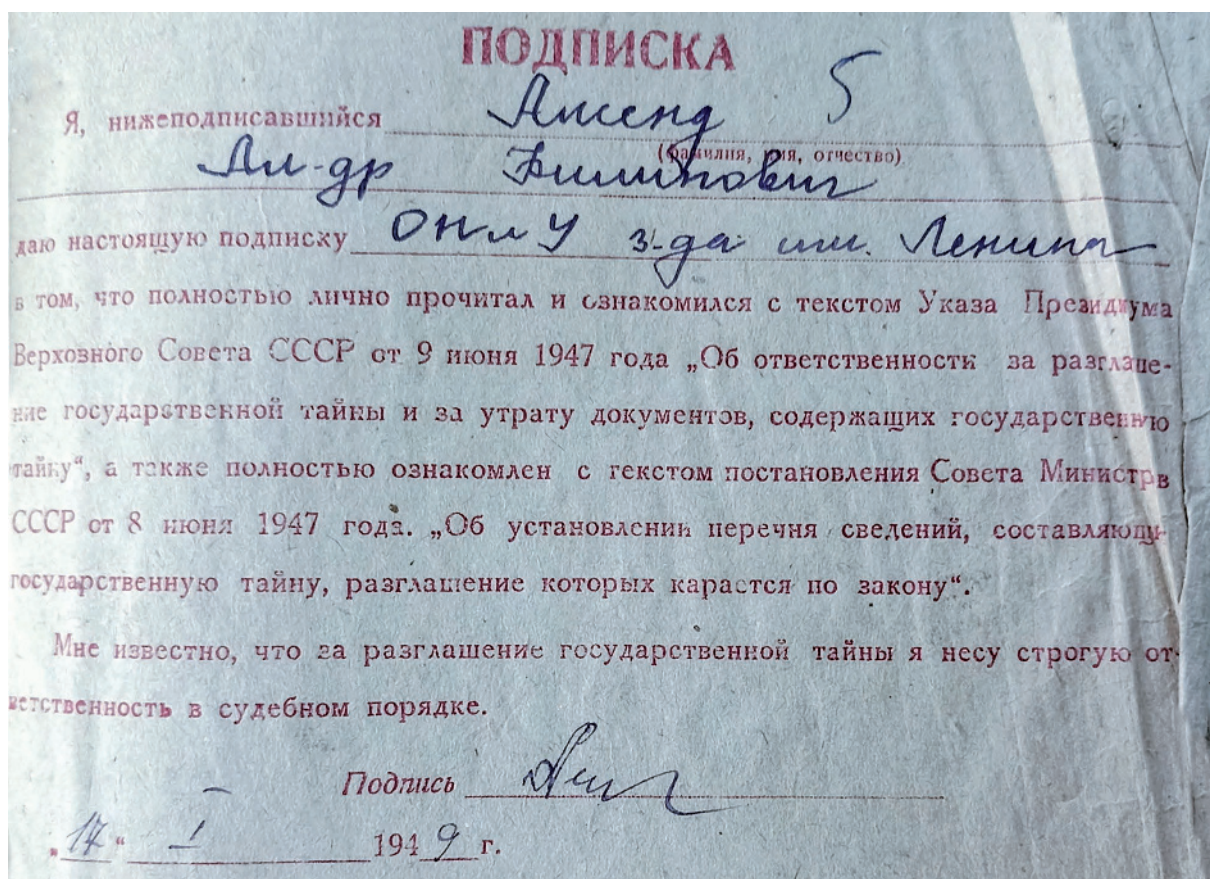 ПОДПИСКА
5
Я, нижеподписавшийся Аменд
(фамилия, имя, отчество)
Ал-др Филиппович
даю настоящую подписку з-да им. Ленина
в том, что полностью лично прочитал и ознакомился с текстом Указа Президиума
Верховного Совета СССР от 9 июня 1947 года „Об ответственности за разглаше-
ние государственной тайны и за утрату документов, содержащих государственную
тайну“, а также полностью ознакомлен с текстом постановления Совета Министрв
СССР от 8 июня 1947 года. „Об установлении перечня сведений, составляющи-
государственную тайну, разглашение которых карается по закону“.
Мне известно, что за разглашение государственной тайны я несу строгую от-
ветственность в судебном порядке.
Подпись
„17“ I 1949 г.